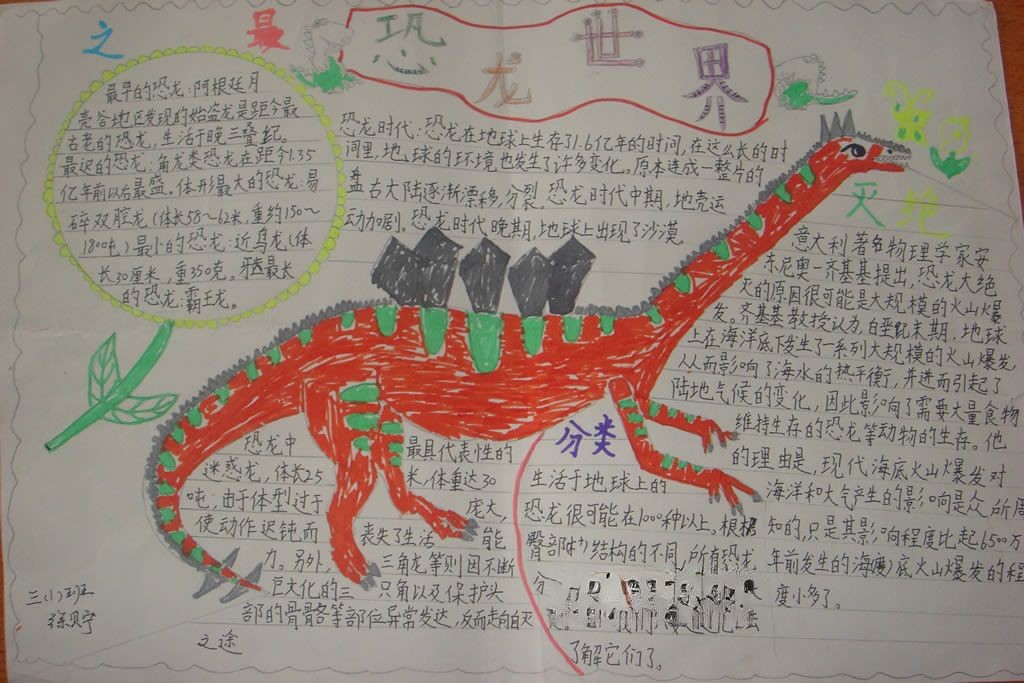 恐龙世界
之最
最早的恐龙:阿根廷月
亮谷地区发现的始盗龙是距今最
古老的恐龙,生活于晚三叠纪。
最迟的恐龙:角龙类恐龙在距今1.35
亿年前以后最盛。体形最大的恐龙:易
碎双腔龙(体长58~62米,重约150~
180吨)最小的恐龙:近鸟龙(体
长30厘米,重350克。牙齿最长
的恐龙:霸王龙。
恐龙时代:恐龙在地球上生存了1.6亿年的时间,在这么长的时
间里,地球的环境也发生了许多变化。原本连成一整片的
盘古大陆逐渐漂移,分裂。恐龙时代中期,地壳运
动加剧。恐龙时代晚期,地球上出现了沙漠。
灭绝
意大利著名物理学家安
东尼奥-齐基基提出,恐龙大绝
灭的原因很可能是大规模的火山爆
发。齐基基教授认为,白垩纪末期,地球
上在海洋底下发生了一系列大规模的火山爆发,
从而影响了海水的热平衡,并进而引起了
陆地气候的变化,因此影响了需要大量食物
维持生存的恐龙等动物的生存。他
的理由是,现代海底火山爆发对
海洋和大气产生的影响是众所周
知的,只是其影响程度比起6500万
年前发生的海底火山爆发的程
度小多了。
恐龙中最具代表性的
迷惑龙,体长25米,体重达30
吨;由于体型过于庞大,
使动作迟钝而丧失了生活能
力。另外,三角龙等则因不断
巨大化的三只角以及保护头
部的骨骼等部位异常发达,反而走向自灭
之途
分类
生活于地球上的
恐龙很可能在1000种以上。根据
臀部结构的不同,所有恐龙
分
了解它们了。
三(1)班